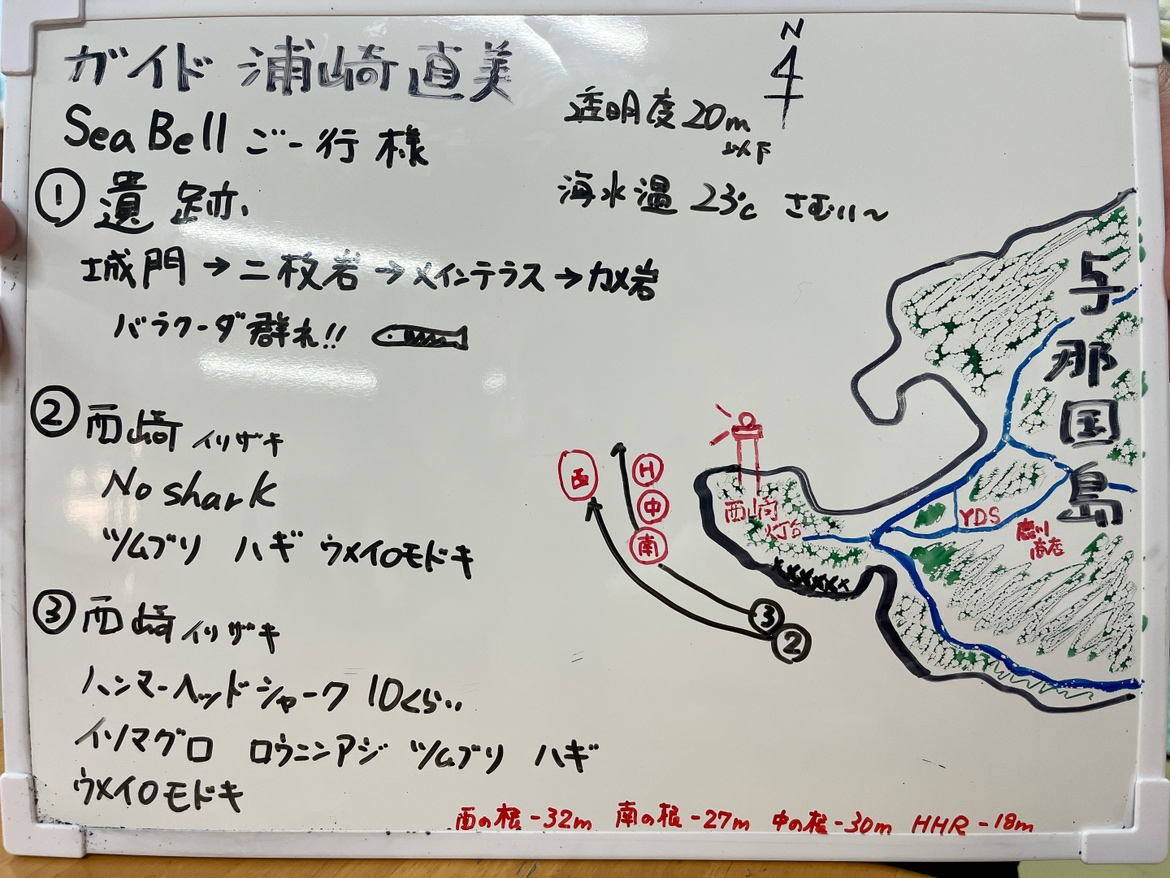 ガイド 浦崎直美
Sea Bell ご一行 様
N
透明度 20m
以下
海水温 23℃ さむい〜
① 遺跡
城門→二枚岩→メインテラス→カメ岩
バラクーダ群れ!!
② 西崎 イリザキ
No shark
ツムブリ ハギ ウメイロモドキ
③ 西崎 イリザキ
ハンマーヘッドシャーク 10くらい
イソマグロ ロウニンアジ ツムブリ ハギ
ウメイロモドキ
与那国島
西
H
中
南
西崎
灯台
YDS
商店
③
②
西の根-32m 南の根-27m 中の根-30m HHR-18m